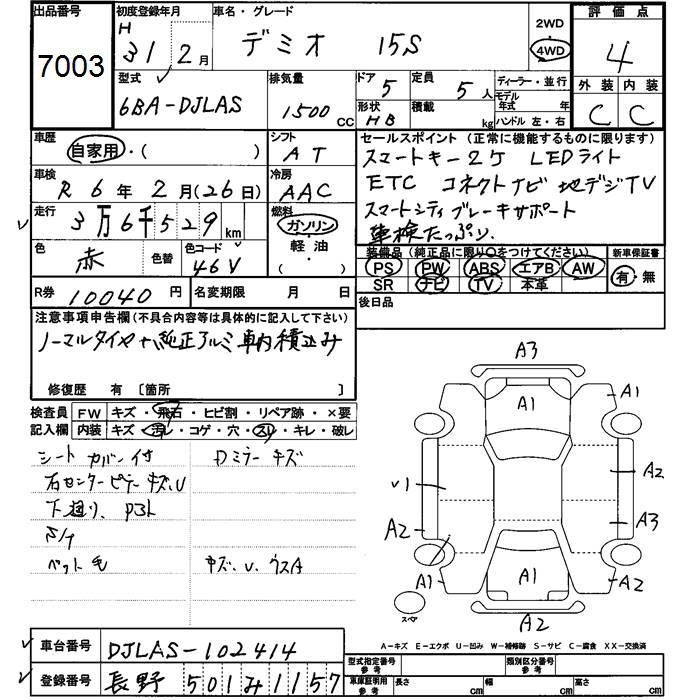 出品番号 7003
初度登録年月 H 31 2月
車名・グレード デミオ 15S
2WD 4WD
評価点 4
外装 内装
C C
型式 6BA-DJLAS
排気量 1500 CC
ドア 5
定員 5人
ディーラー・並行
モデル年式 年
形状 HB
積載 kg
ハンドル 左・右
車歴 自家用・( )
シフト AT
車検 R 6年 2月(26日)
冷房 AAC
走行 3万6千529 km
燃料 ガソリン
軽油
・( )
色 赤 色替 色コード 46V
R券 10040円 名変期限 月 日
セールスポイント(正常に機能するものに限ります)
スマートキー2ケ LEDライト
ETC コネクトナビ 地デジTV
スマートシティブレーキサポート
車検たっぷり。
装備品(純正品に限り○をつけてください) 新車保証書
PS PW ABS エアB AW 有・無
SR ナビ TV 本革
後日品
注意事項申告欄(不具合内容等は具体的に記入して下さい)
ノーマルタイヤ 純正アルミ 車内積込み
修復歴 有 〔箇所 〕
検査員 FW キズ・飛石・ヒビ割・リペア跡・×要
記入欄 内装 キズ・汚レ・コゲ・穴・スレ・キレ・破レ
シートカバー付 Dミラーキズ
右センターピラーキズ、U
下廻り、
ペット毛 キズ、U、ウスA
A3
A1 A1
A2
V1
A2 A3
A1 A1 A2
A2
スペア
A-キズ E-エクボ U-凹み W-補修跡 S-サビ C-腐食 XX-交換済
車台番号 DJLAS-102414
登録番号 長野 501み1157
型式指定番号 参考
類別区分番号 参考
車庫証明用 参考 長さ cm 幅 cm 高さ cm